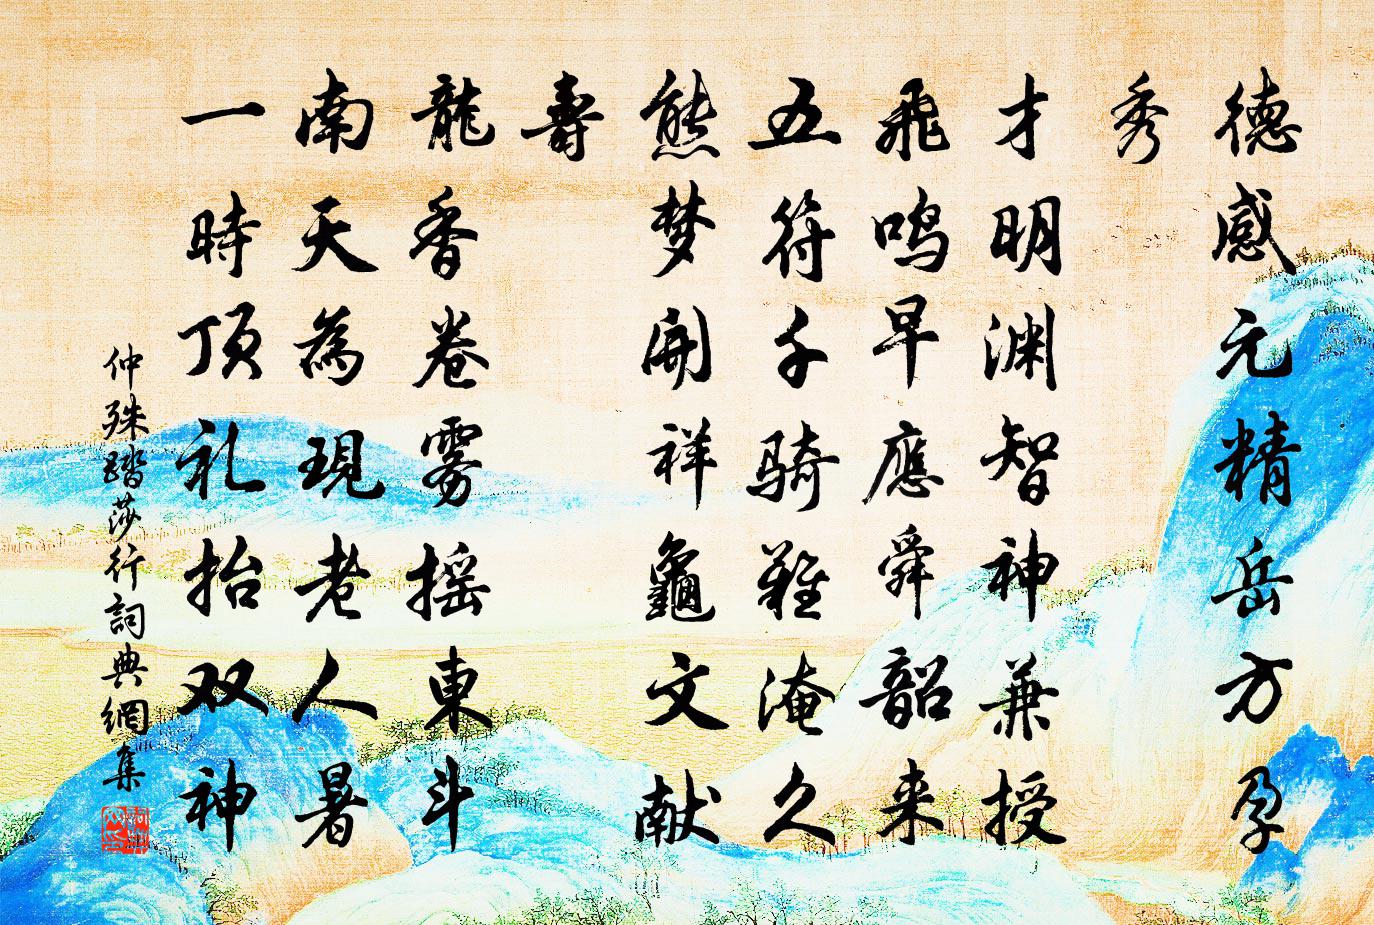 德感元精岳方孕
秀
才明渊智神兼授
飛鸣早應舜韶来
五符千骑難淹久
熊梦開祥龜文献
壽
龍香卷雾摇東斗
南天為現老人暑
一時顶礼抬双神
仲殊踏莎行詞典網集